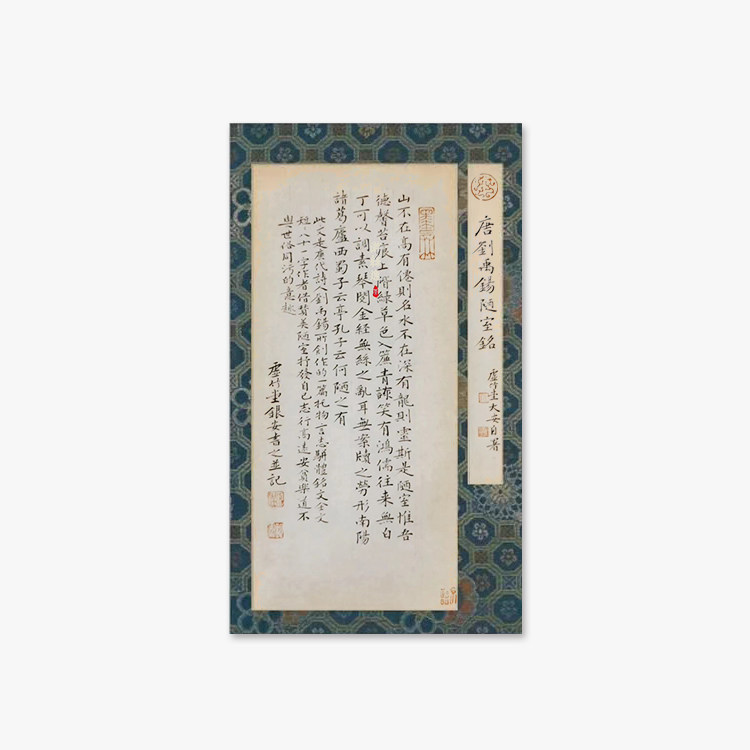 唐劉禹錫陋室銘
虛竹堂大安自署
山不在高有僊則名水不在深有龍則靈斯是陋室惟吾
德馨苔痕上階綠草色入簾青談笑有鴻儒往来無白
丁可以調素琴閱金經無絲之亂耳無案牘之勞形南陽
諸葛廬西蜀子云亭孔子云何陋之有
此文是唐代詩人劉禹錫所創作的一篇托物言志駢體銘文全文
短〻八十一字作者借贊美陋室抒發自己志行高遠安貧樂道不
與世俗同污的意趣
虛竹堂銀安書之並記